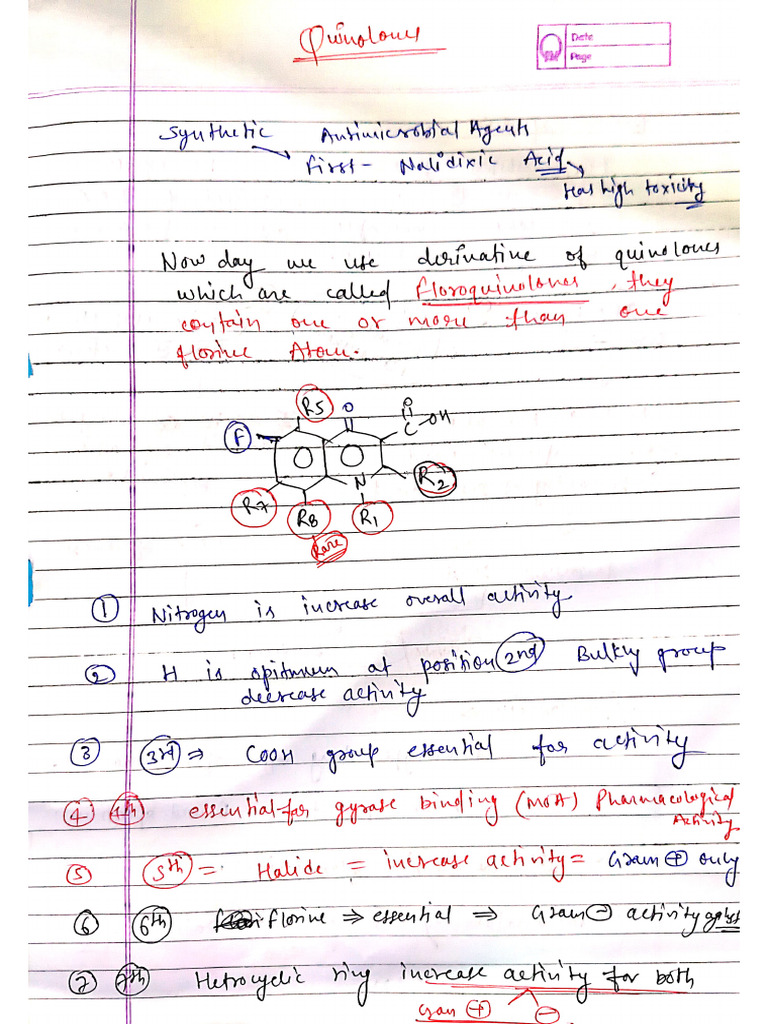 Quinolones
Date
Page
Synthetic Antimicrobial Agents
First - Nalidixic Acid
Has high toxicity
Now day we use derivative of quinolones
which are called Floroquinolones, they
contain one or more than one
florine Atom.
R5 O O
F C-OH
N R2
R7 R8 R1
Rare
① Nitrogen is increase overall activity
② H is opitmum at position 2nd Bulkly group
decrease activity
③ 3rd ⇒ COOH group essential for activity
④ 4th essential for gyrase binding (MOA) Pharmacological
Activity
⑤ 5th = Halide = increase activity = Gram ⊕ only
⑥ 6th florine ⇒ essential ⇒ Gram ⊖ activity
⑦ 7th Hetrocyclic ring increase activity for both
Gram ⊕ ⊖